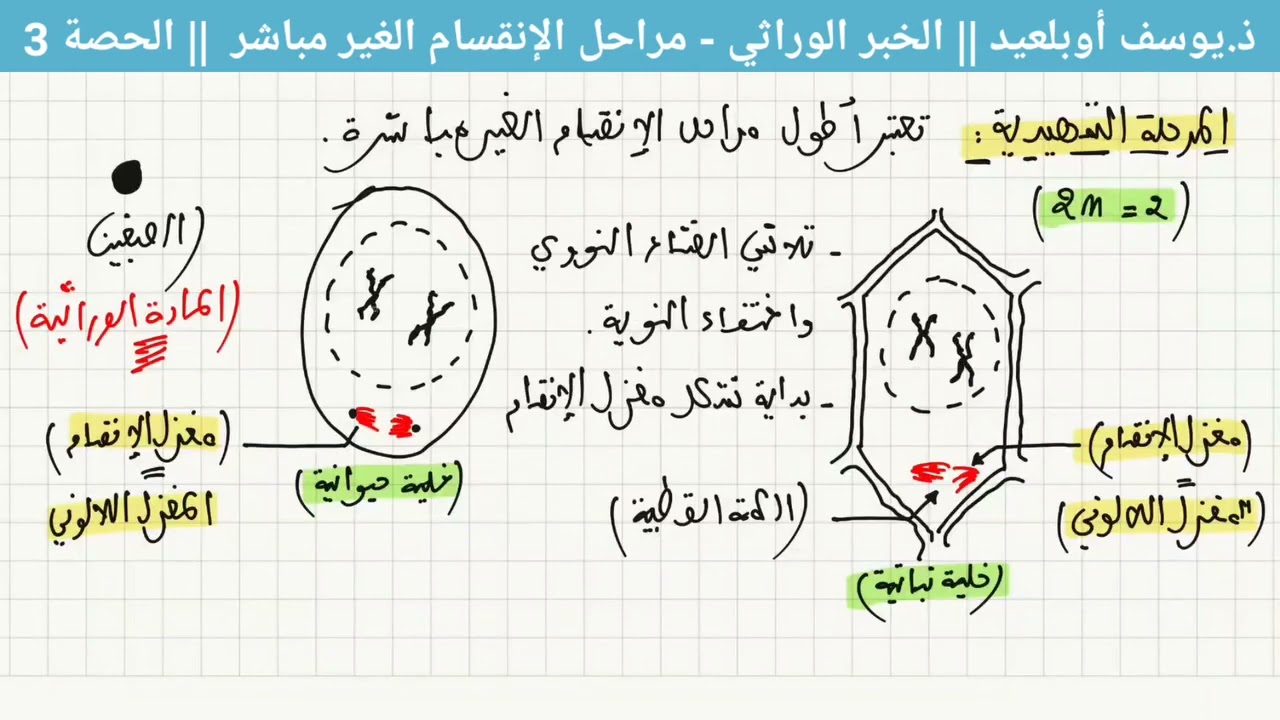 ذ.يوسف أوبلعيد || الخبر الوراثي - مراحل الإنقسام الغير مباشر || الحصة 3
المرحلة التمهيدية : تعتبر أطول مراحل الإنقسام الغير مباشرة .
(2n = 2)
- تلاشي الغشاء النووي
واختفاء النوية .
- بداية تشكل مغزل الإنقسام
(الصبغين)
(المادة الوراثية)
(مغزل الإنقسام)
=
المغزل اللالوني
(خلية حيوانية)
(الكمة القطبية)
(مغزل الإنقسام)
=
(المغزل اللالوني)
(خلية نباتية)